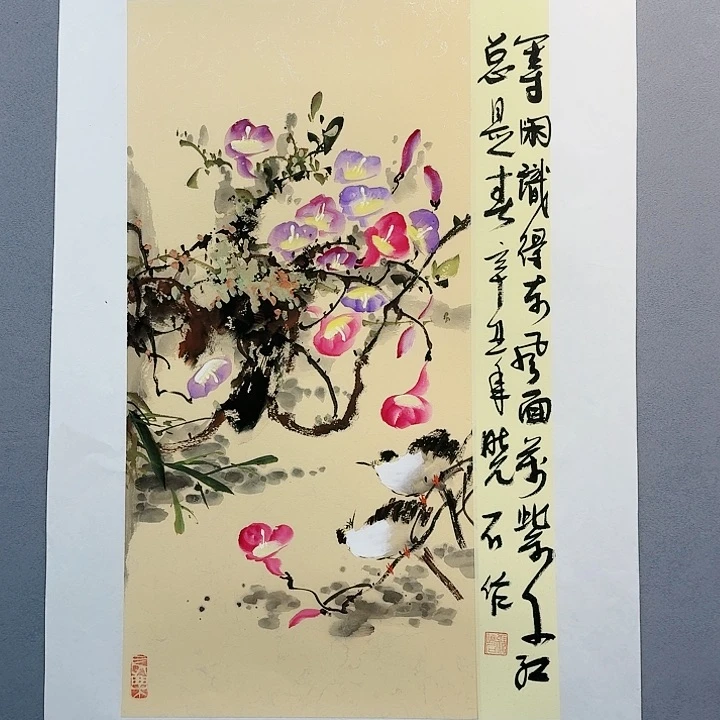 等闲識得东风面萬紫千红
总是春辛丑年晓石作